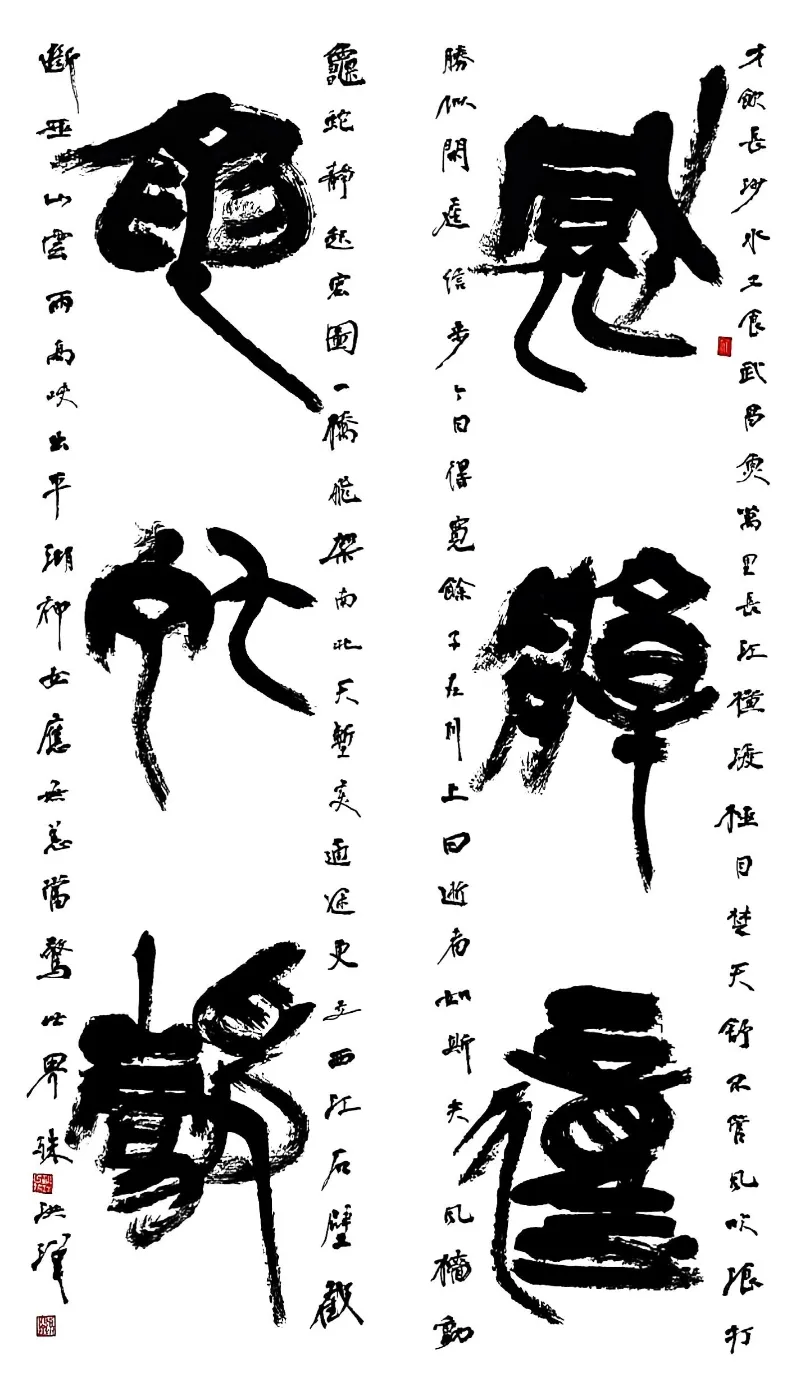 才飲長沙水又食武昌魚萬里長江橫渡極目楚天舒不管風吹浪打
風檣動
勝似閑庭信步今日得寬餘子在川上曰逝者如斯夫風檣動
龜蛇靜起宏圖一橋飛架南北天塹变通途更立西江石壁截
龜蛇靜
斷巫山雲雨高峽出平湖神女應無恙當驚世界殊